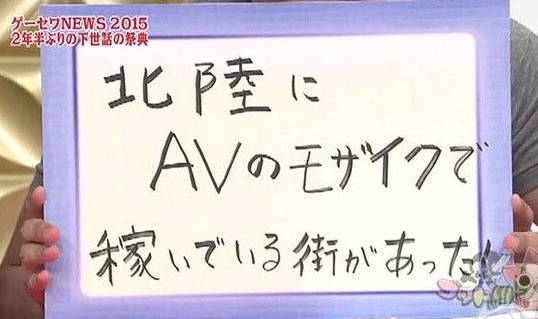 ゲーセワNEWS 2015
2年半ぶりの下世話の祭典
北陸に
AVのモザイクで
稼いでいる街があった!